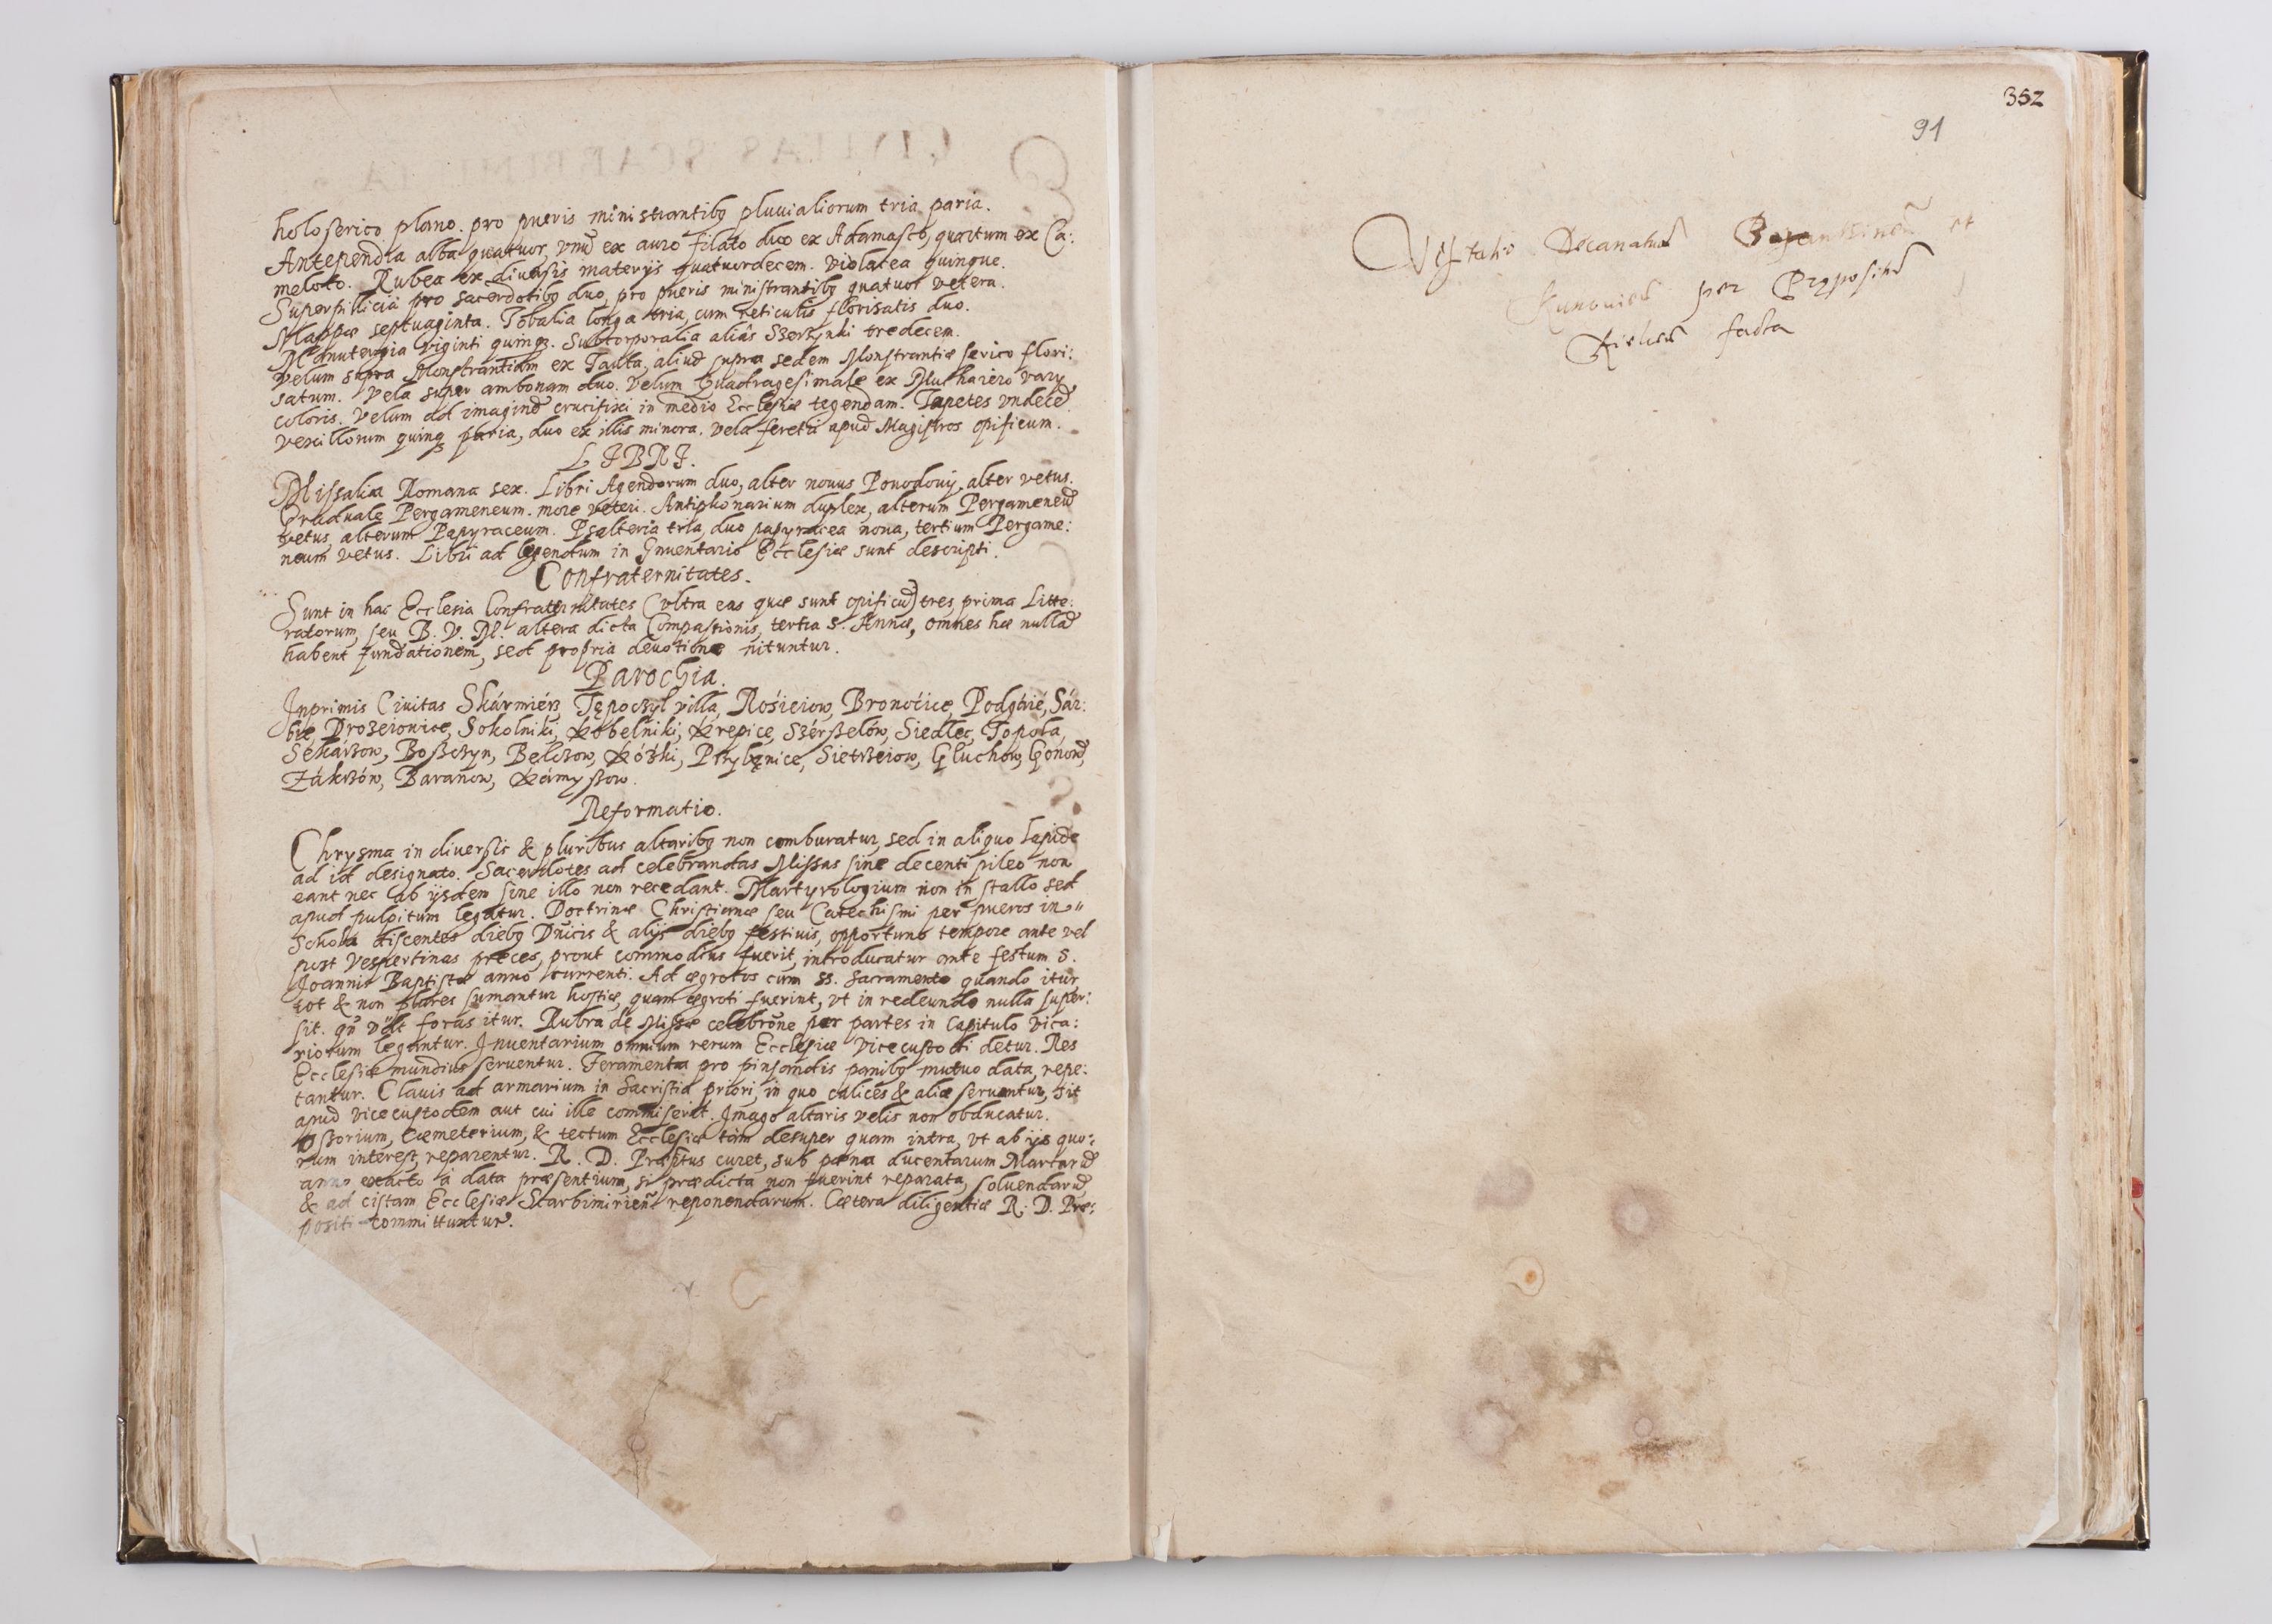 holoserico plano. pro pueris ministrantibꝫ pluuialiorum tria paria.
Antependia alba quatuor, vnū ex auro filato duo ex Adamasco, quartum ex Ca:
meloto. Rubea ex diuersis materijs quatuordecem. violacea quinque.
Superpillicia pro sacerdotibꝫ duo, pro pueris ministrantibꝫ quatuor vetera.
Mappæ septuaginta. Tobalia longa tria, cum reticulis florisatis duo.
Manutergia viginti quinqꝫ. Subcorporalia aliâs Szerzynki tredecem.
velum supra Monstrantiam ex Tauta, aliud supra sedem Monstrantiæ serico flori:
satum. Vela super ambonam duo. Velum Quadragesimale ex Muchaiero varij
coloris. Velum ad imaginē crucifixi in medio Ecclesiæ tegendam. Tapetes vndecē
vexillorum quinqꝫ paria, duo ex illis minora. Vela feretri apud Magistros opificum.
LIBRI.
Missalia Romana sex. Libri Agendorum duo, alter nouus Pouodouij, alter vetus.
Graduale Pergameneum. more veteri. Antiphonarium duplex, alterum Pergameneū
vetus, alterum Papyraceum. Psalteria tria, duo papyracea noua, tertium Pergame:
neum vetus. Libri ad legendum in Inuentario Ecclesiæ sunt descripti.
Confraternitates.
Sunt in hac Ecclesia Confraternitates (vltra eas quæ sunt opificū) tres, prima Litte:
ratorum, seu B. V. M. altera dicta Compassionis, tertia S. Annæ, omnes hæ nullā
habent fundationem, sed propria deuotione nituntur.
Parochia.
Inprimis Ciuitas Skármiérz Tępoczyl villa, Rośieiow, Bronoćice, Podgáie, Sár:
bie, Drozeiowice, Sokolniki, Kobelniki, Krepice, Szérszelów, Siedlec, Topola,
Sekárzow, Boszczyn, Bełczow, Kózki, Przybęnice, Sietrzeiow, Głuchow, Gonow,
Zákrzów, Baranow, Kámyszow.
Reformatio.
Chrysma in diuersis & pluribus altaribꝫ non comburatur, sed in aliquo lapide
ad id designato. Sacerdotes ad celebrandas Missas sine decenti pileo non
eant nec ab ijsdem sine illo non recedant. Martyrologium non in stallo sed
apud pulpitum legatur. Doctrinæ Christianæ seu Catechismi per pueros in
Schola discentes diebꝫ Dn̄icis & alijs diebꝫ festiuis, opportuno tempore ante vel
post Vespertinas preces, prout commodius fuerit, introducatur ante festum S.
Joannis Baptistæ anno currenti. Ad ægrotos cum SS. Sacramento quando itur
tot & non plures sumantur hostiæ, quam ægroti fuerint, vt in redeundo nulla super:
sit. foras itur. Rubra de Missæ celebrōne per partes in Capitulo vica:
riorum legantur. Inuentarium omnium rerum Ecclesiæ Vicecustodi detur. Res
Ecclesiæ mundius seruentur. Feramenta pro pinsandis panibꝫ mutuo data, repe:
tantur. Clauis ad armarium in Sacristia priori, in quo calices & alia seruantur, sit
apud vicecustodem aut cui ille commiserit. Imago altaris velis non obducatur.
Ossorium, Cæmeterium, & tectum Ecclesiæ tàm desuper quam intra, vt ab ijs quo:
rum interest, reparentur. R. D. Præptus curet, sub pœna ducentarum Marcarū
anno exacto à data præsentium, si prædicta non fuerint reparata, soluendarū
& ad cistam Ecclesiæ Scarbimirien̄ reponendarum. Cætera diligentiæ R. D. Præ:
positi committuntur.
352
91
Visitatio Decanatuū et
Kunouień per Præpositū
Kielceń facta